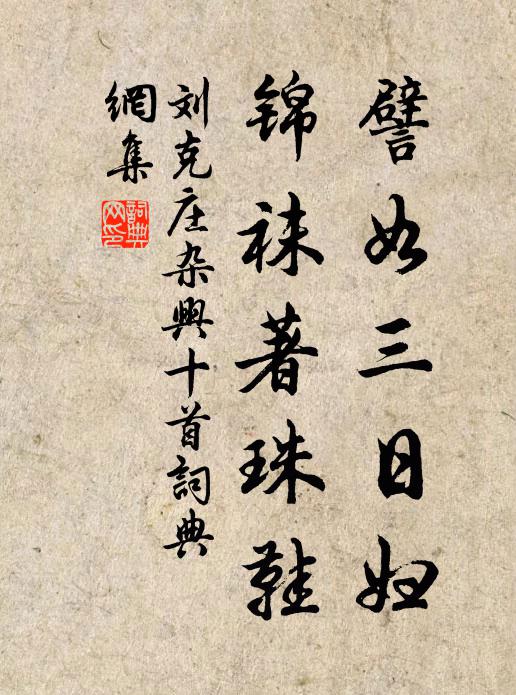 譬如三日妇
锦袜著珠鞋
刘克庄杂兴十首詞典
網集
詞典网印